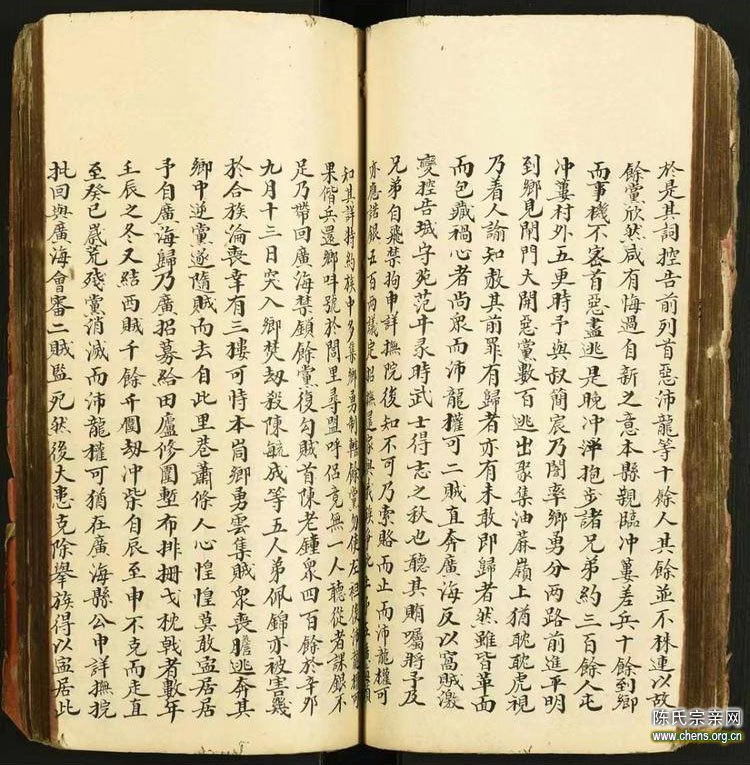 於是具詞控告前列首惡沛龍等十餘人其餘並不株連以故
餘黨欣然咸有悔過自新之意本縣親臨冲蔞差兵十餘到鄉
而事機不密首惡盡逃是晚冲洋抱步諸兄弟約三百餘人屯
冲蔞村外五更時予與叔簡宸乃閣率鄉勇分兩路前進平明
到鄉見閘門大開惡黨數百逃出聚集油蔴嶺上猶耽耽虎視
乃着人諭知赦其前罪有歸者亦有未敢即歸者然雖皆革面
而包藏禍心者尚衆而沛龍權可二賊直奔廣海反以窩賊激
變控告城守苑范平承時武士得志之秋也聽其賄囑將予及
兄弟伯飛禁拘申詳撫院後知不可乃索賂而止而沛龍權可
亦應諾銀五百兩議定招撫還家與
知其詳特約族中多集鄉勇制轄餘黨勿使左袒後
果偕兵還鄉呌號於閭里尋盟呼侶竟無一人聽從者謀銀不
足乃帶回廣海禁鎖餘黨復勾賊首陳老鐘衆四百餘於辛夘
九月十三日突入鄉焚刼殺陳毓成等五人弟佩錦亦被害幾
於合族淪喪幸有三樓可恃本崗鄉勇雲集賊衆喪膽逃奔其
鄉中逆黨遂隨賊而去自此里巷蕭條人心惶惶莫敢寍居
予自廣海歸乃廣招募給田廬修圍塹布排柵戈枕戟者數年
壬辰之冬又結西賊千餘千圍刼冲柴自辰至申不克而走直
至癸巳歲荒殘黨消滅而沛龍權可猶在廣海縣公申詳撫院
批回與廣海會審二賊監死然後大患克除舉族得以寍居此
陳氏宗亲网
www.chens.org.cn